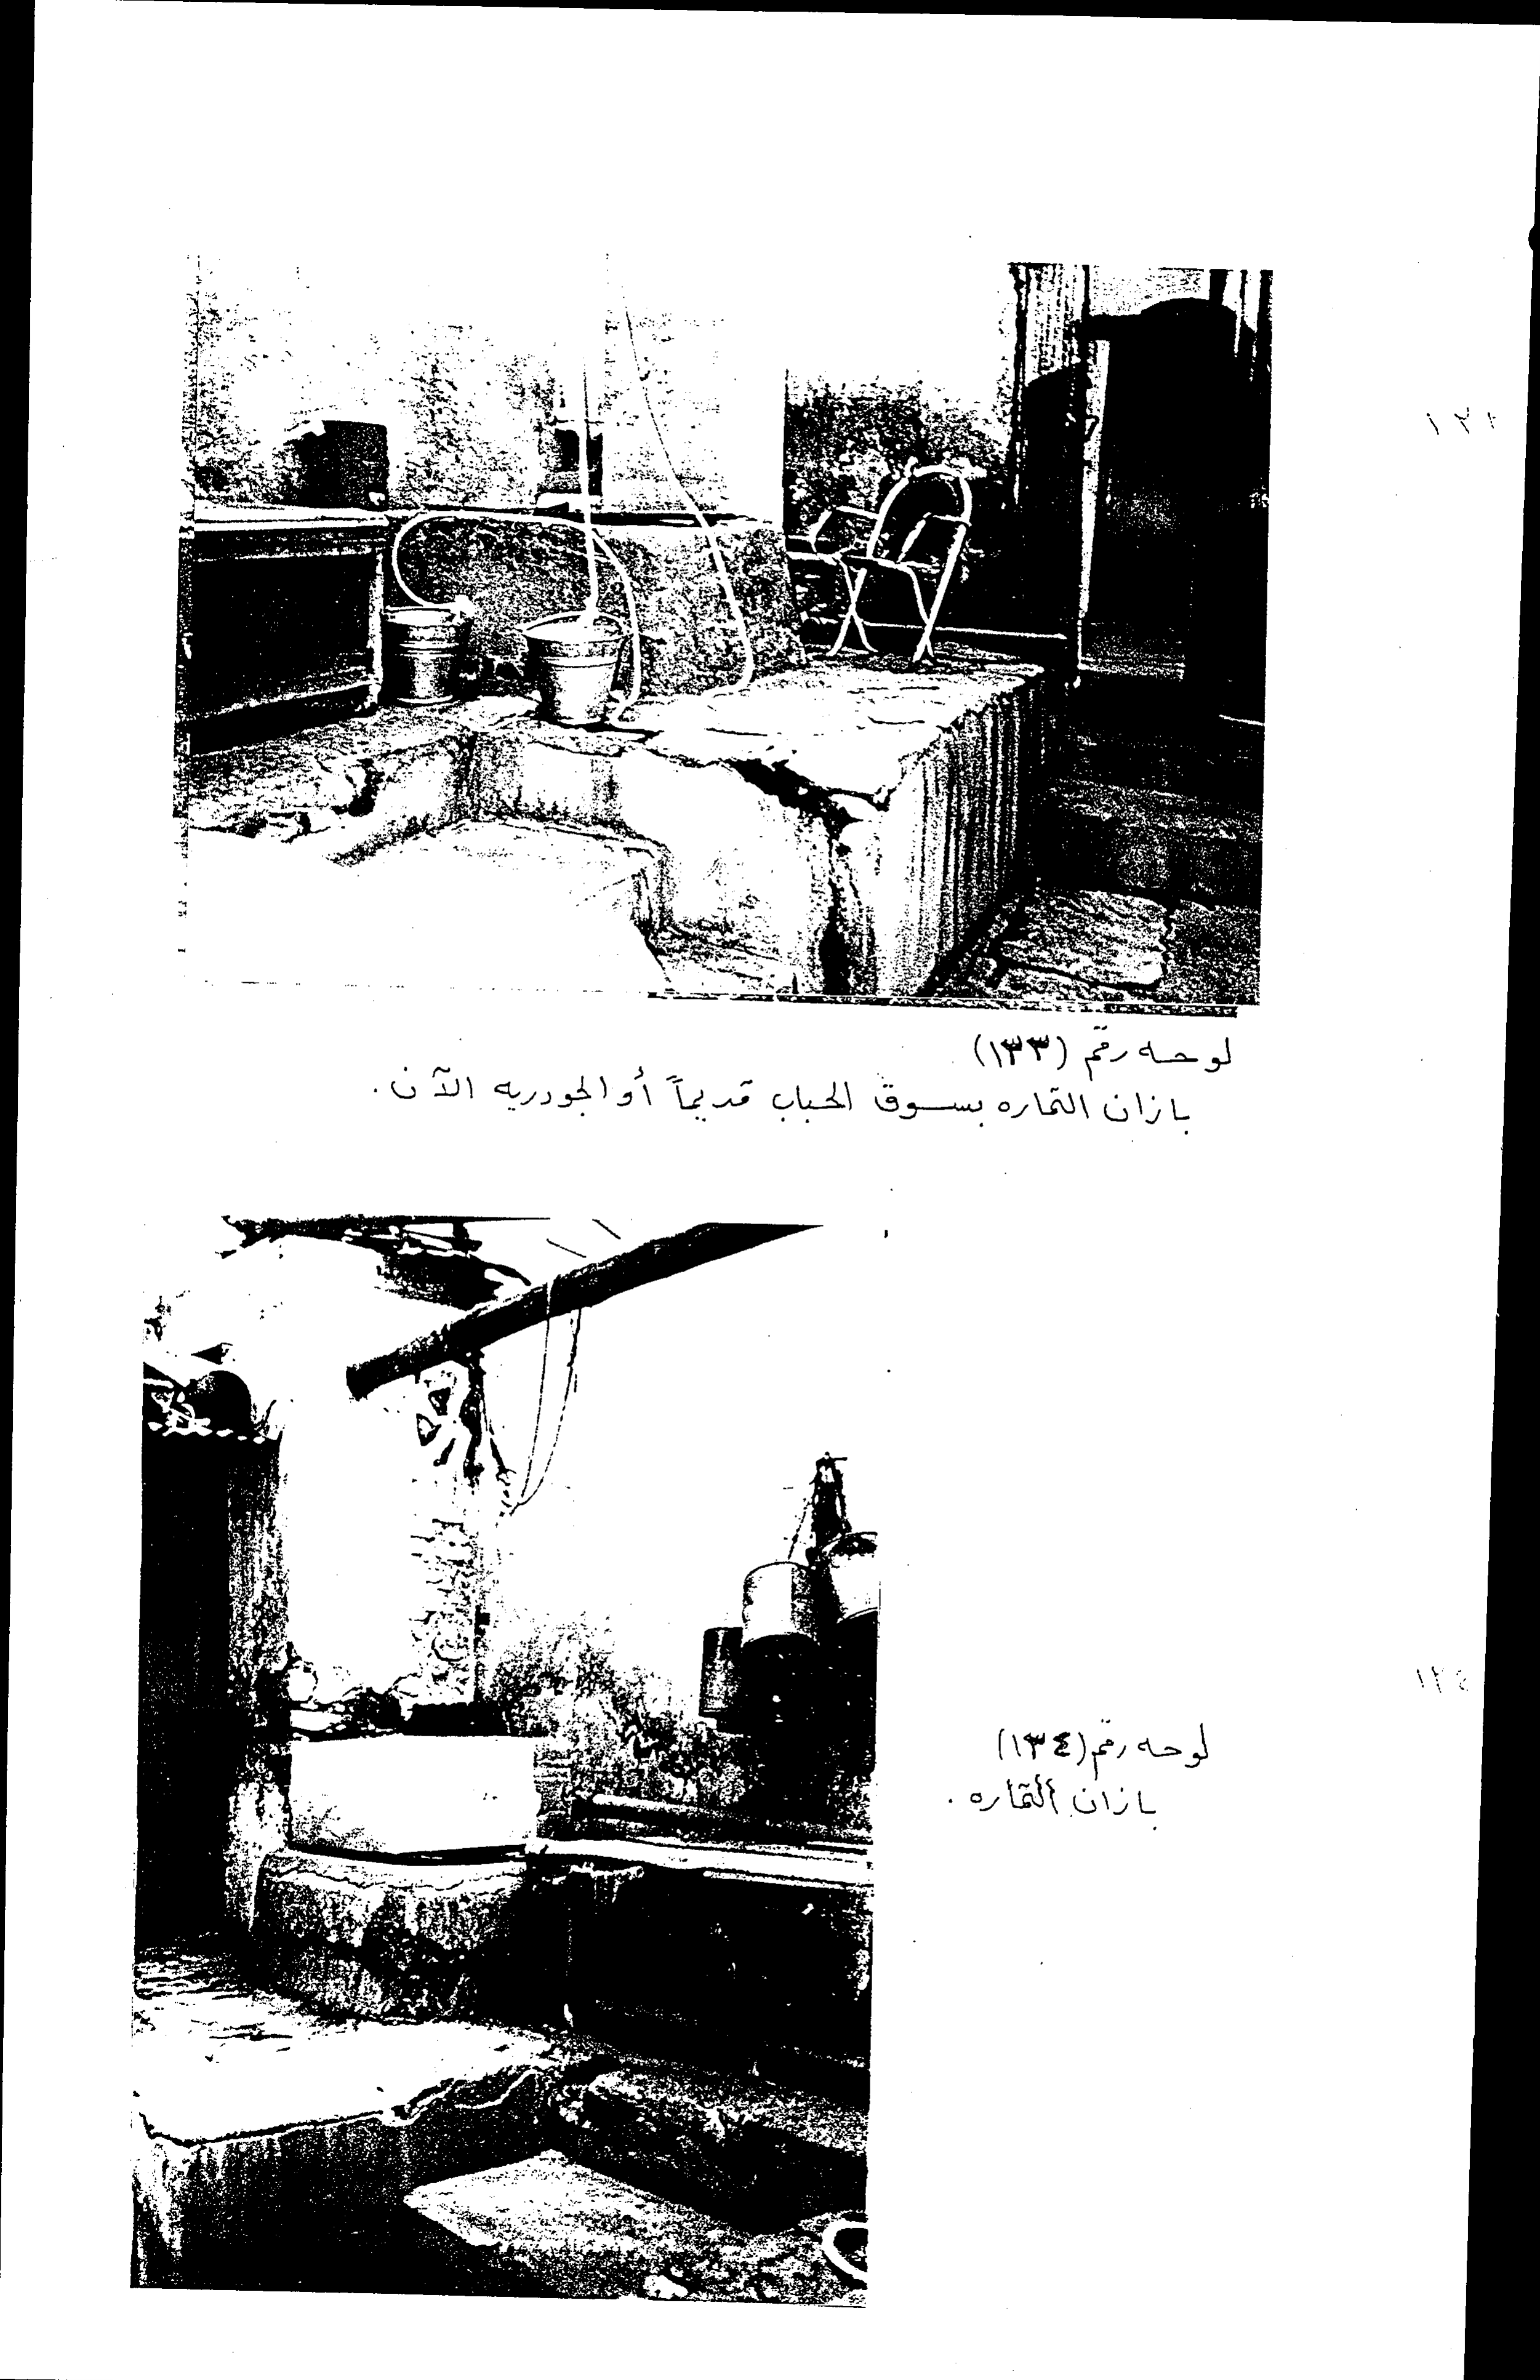 لوحه رقم (١٣٣)
بازان التماره بسوق الحباب قديماً أو الجودريه الآن .
لوحه رقم (١٣٤)
بازان ألتماره .
١٣٤